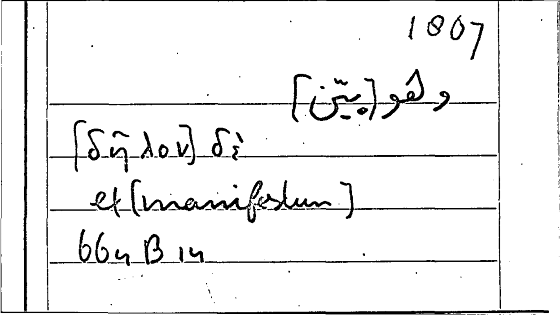 1807
وهو [بيّن]
[δῆλον] δὲ
et [manifestum]
66u B 14